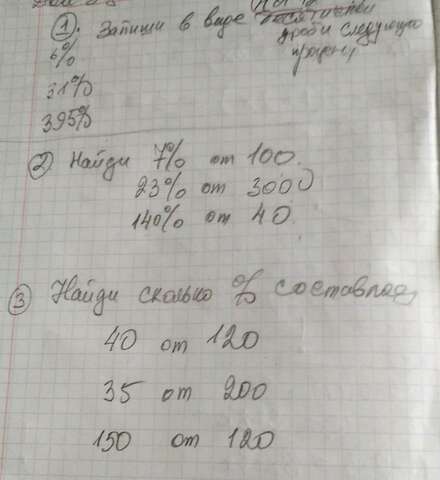 1. Запиши в виде десятичной
дроби следующие
проценты
6%
31%
395%
2 Найди 7% от 100.
23% от 3000
140% от 40.
3 Найди сколько % составляет
40 от 120
35 от 200
150 от 120